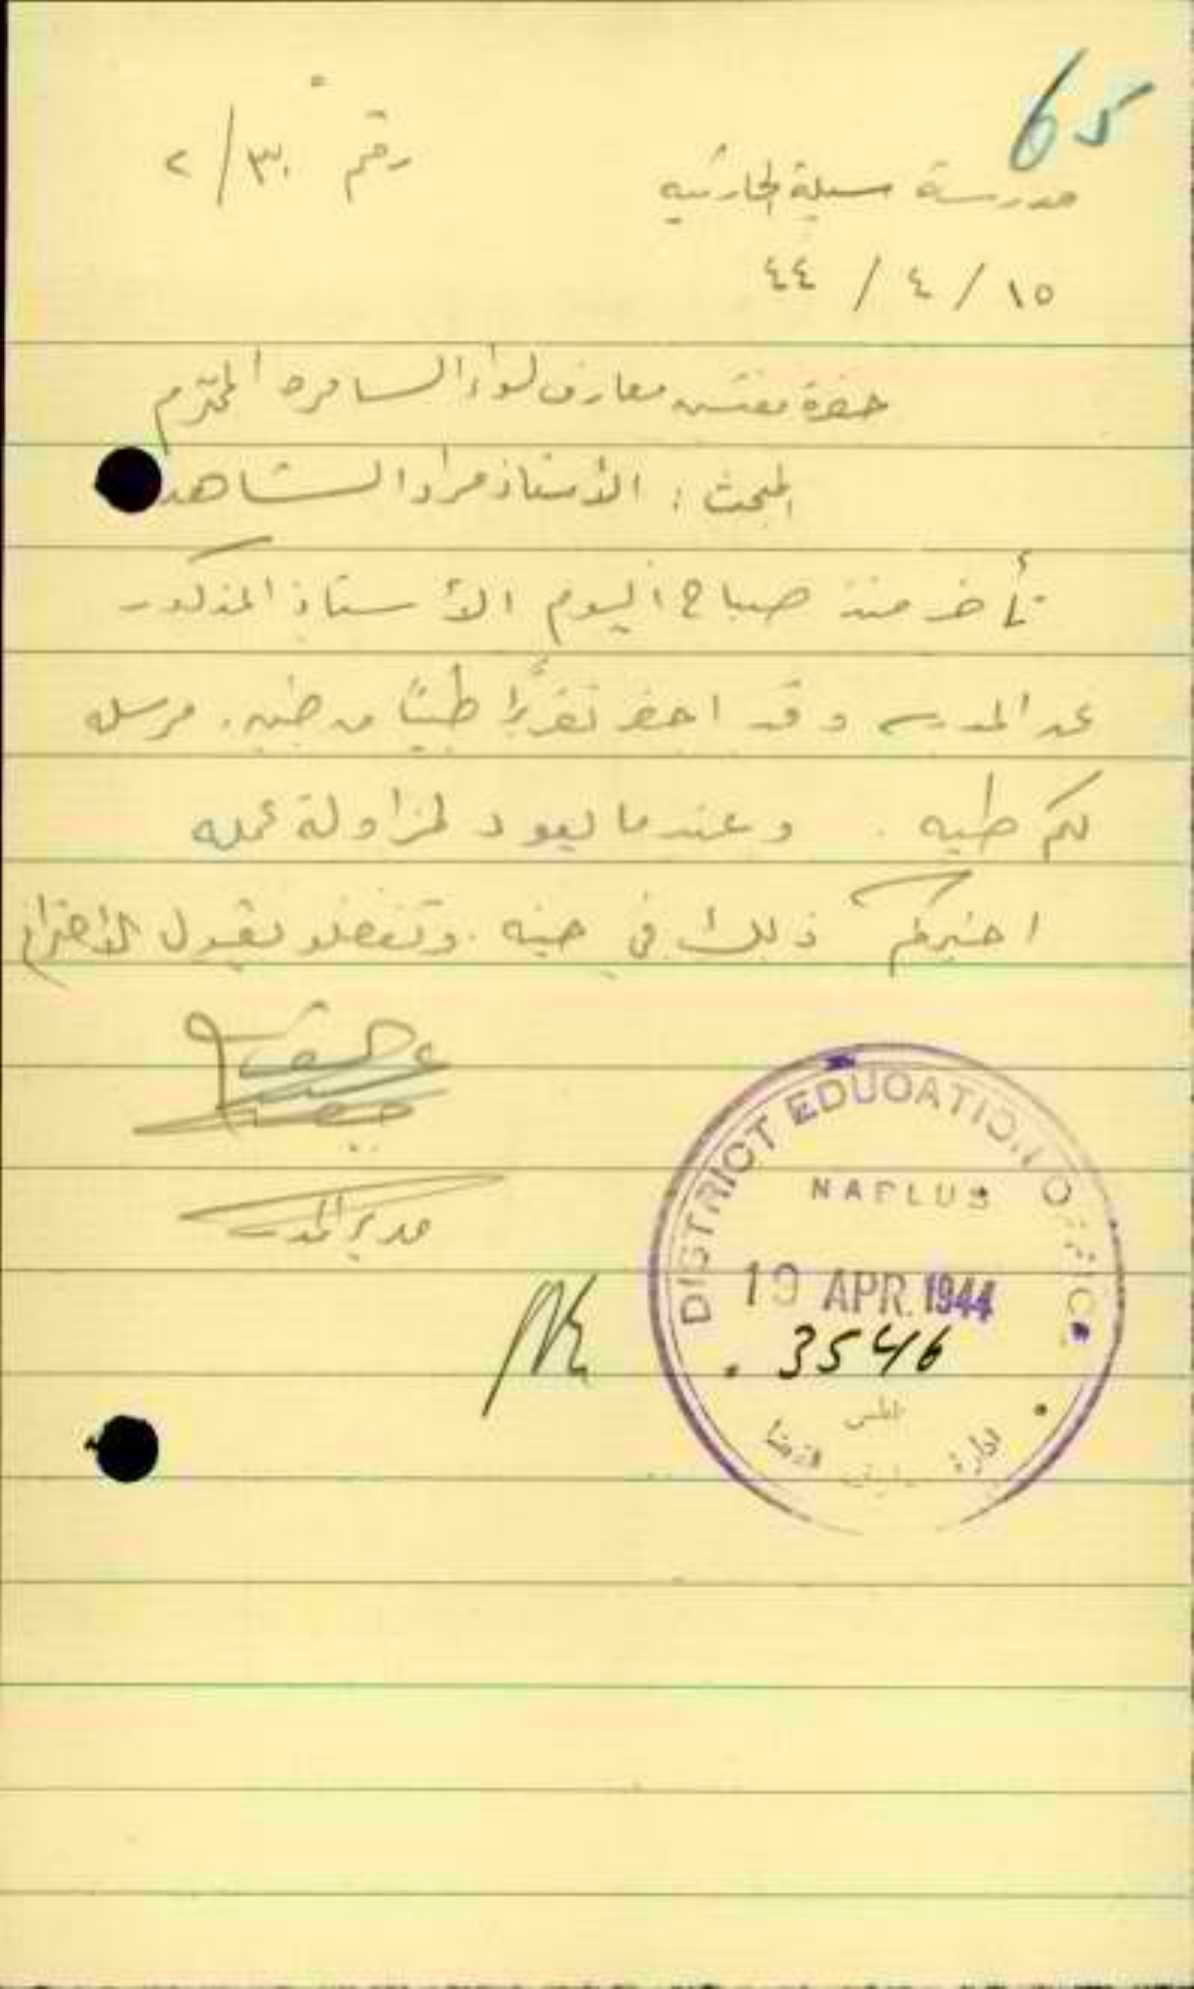 65
مدرسة سيلة الحارثيه
رقم ٣٠/٢
١٥ / ٤ / ٤٤
حضرة مفتش معارف لواء السامره المحترم
المبحث : الأستاذ مراد الشاهد
تأخر منذ صباح اليوم الأستاذ المذكور
عن المدرسه وقد احضر تقريرًا طبيًا من جنين . مرسل
لكم طيه . وعندما يعود لمزاولة عمله
اخبركم ذلك في حينه . وتفضلو بقبول الاحترام
مدير المدرسة
DISTRICT EDUCATION OFFICE
NABLUS
19 APR. 1944
3546
نابلس
ادارة معارف